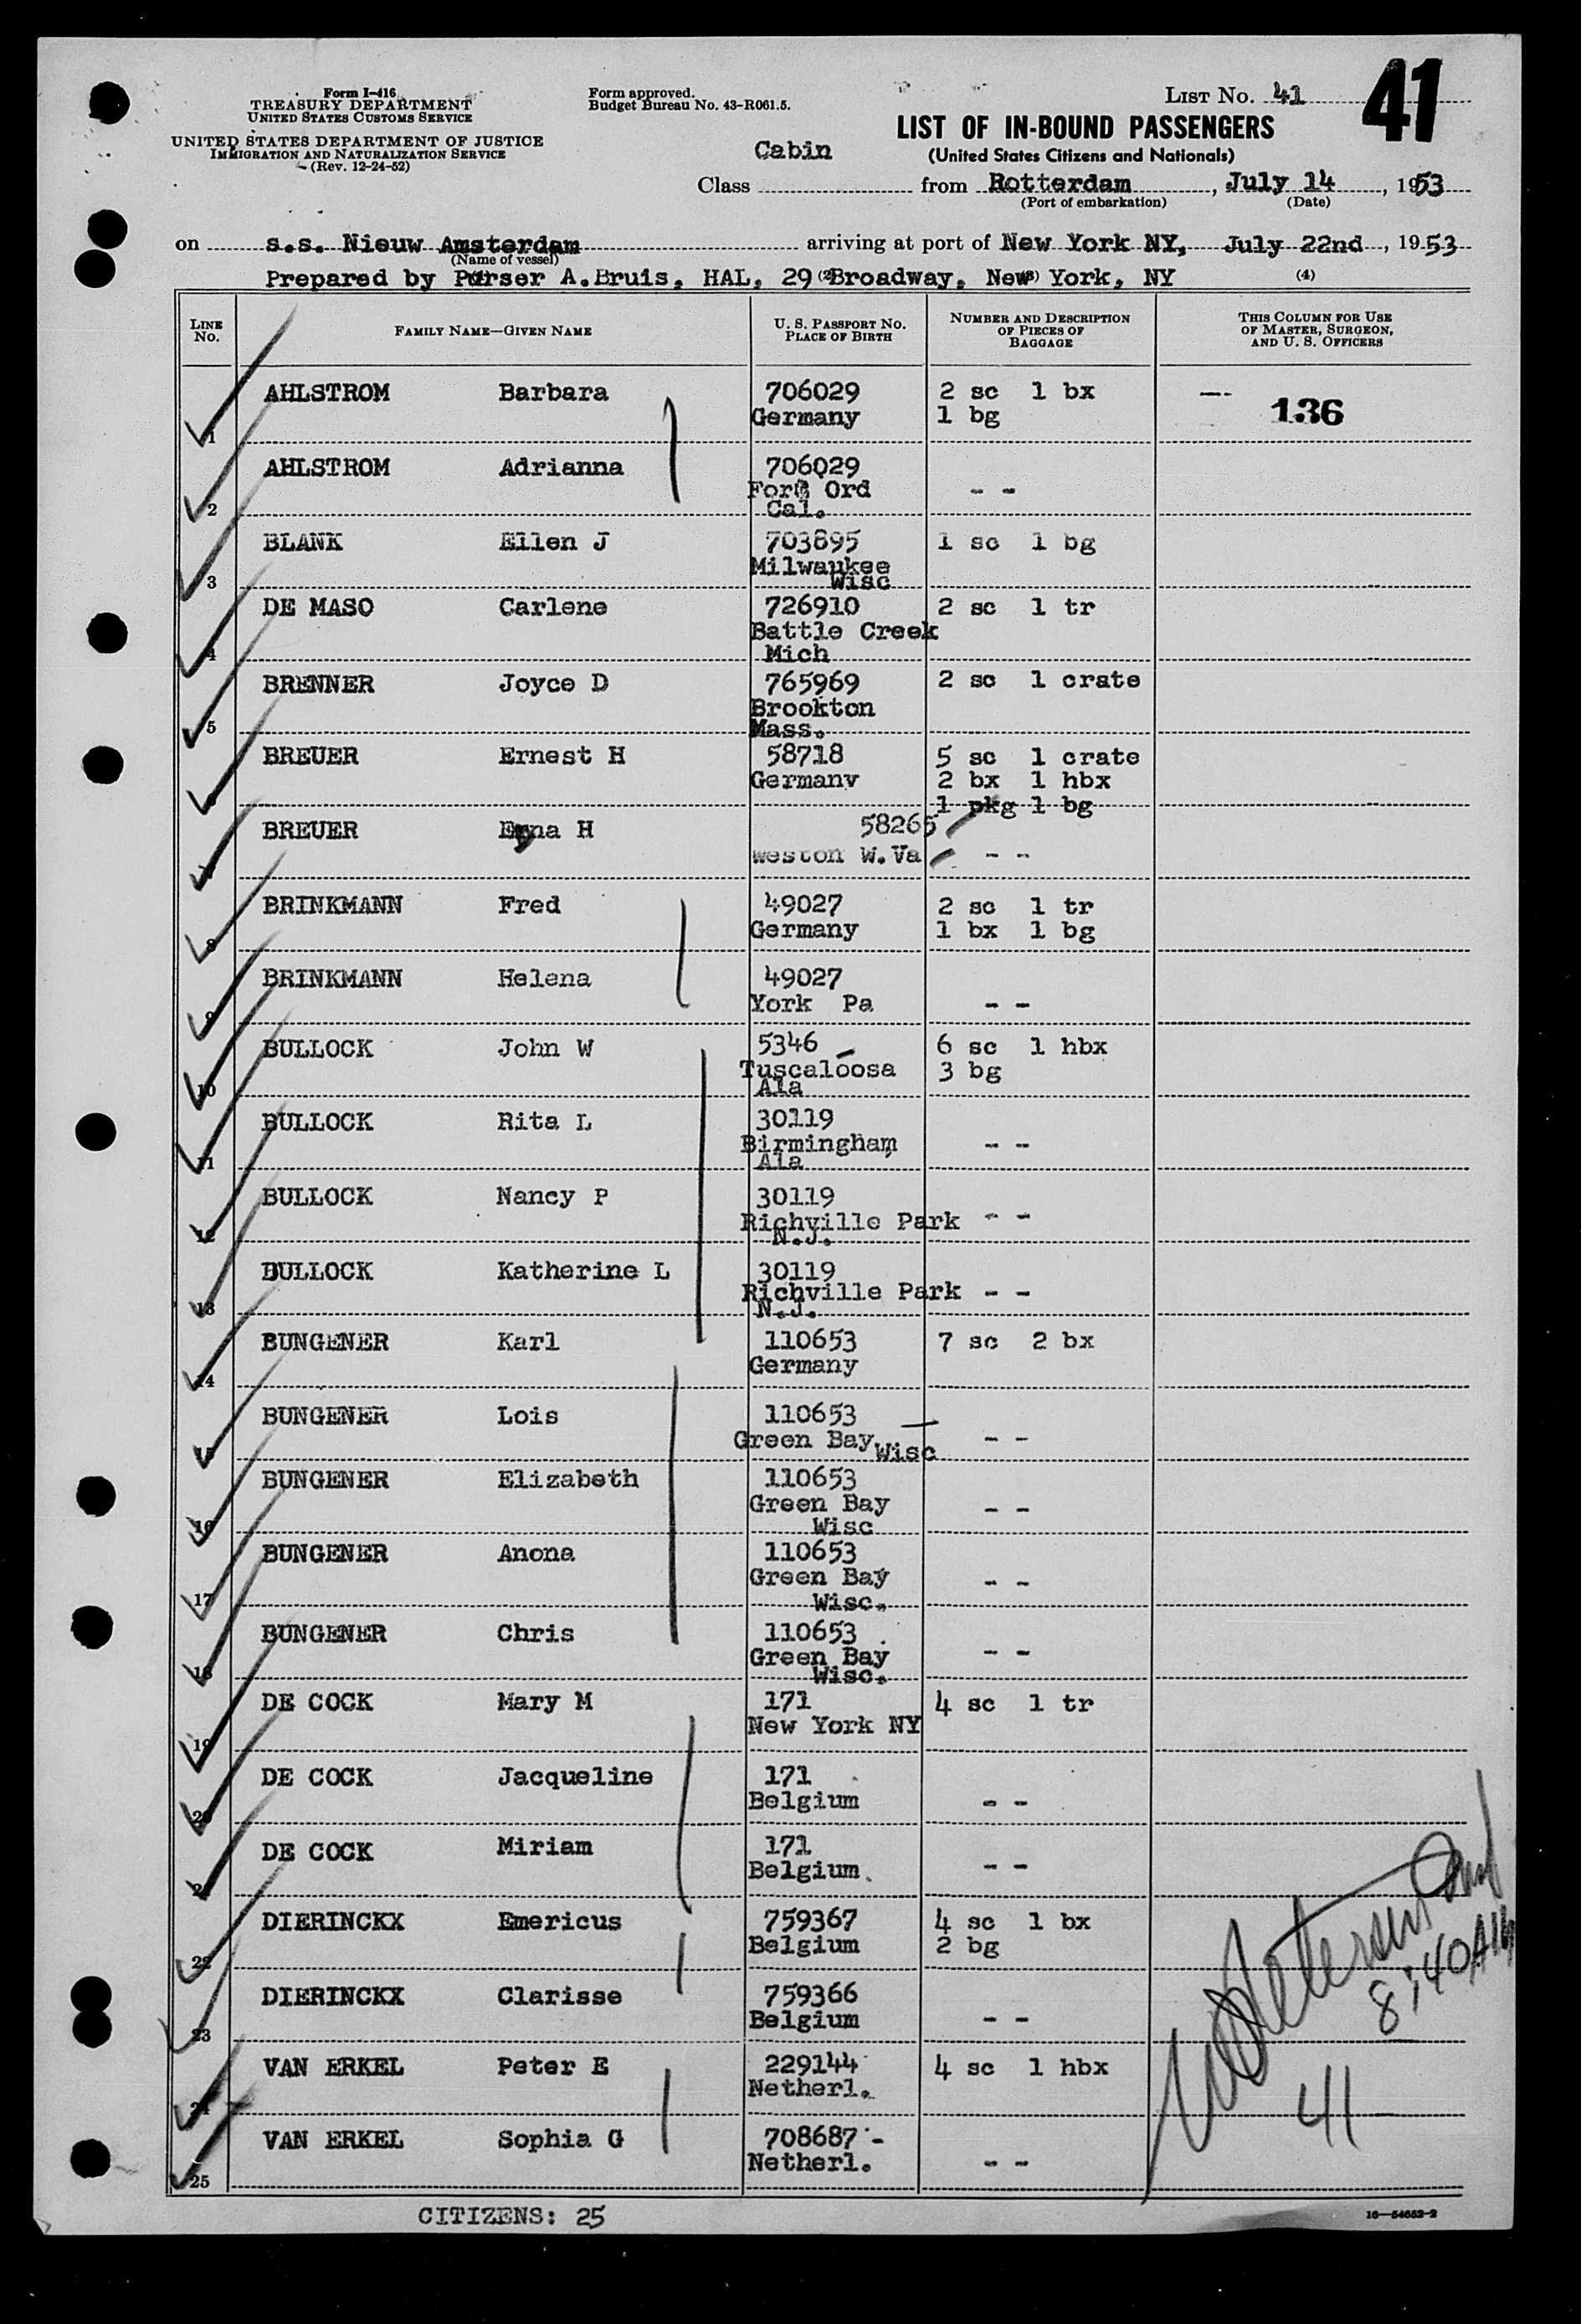 Form I-416
TREASURY DEPARTMENT
UNITED STATES CUSTOMS SERVICE
UNITED STATES DEPARTMENT OF JUSTICE
IMMIGRATION AND NATURALIZATION SERVICE
(Rev. 12-24-52)
Form approved.
Budget Bureau No. 43-R061.5.
LIST No. 41
41
LIST OF IN-BOUND PASSENGERS
(United States Citizens and Nationals)
Cabin
Class from Rotterdam, July 14, 1953
(Port of embarkation) (Date)
on s.s. Nieuw Amsterdam arriving at port of New York NY, July 22nd, 1953
(Name of vessel)
Prepared by Purser A.Bruis, HAL, 29 Broadway, New York, NY
(2) (3) (4)
LINE No.
FAMILY NAME—GIVEN NAME
U. S. PASSPORT NO. PLACE OF BIRTH
NUMBER AND DESCRIPTION OF PIECES OF BAGGAGE
THIS COLUMN FOR USE OF MASTER, SURGEON, AND U. S. OFFICERS
1 AHLSTROM Barbara 706029 2 sc 1 bx --
Germany 1 bg 136
2 AHLSTROM Adrianna 706029
Fort Ord - -
Cal.
3 BLANK Ellen J 703895 1 sc 1 bg
Milwaukee
Wisc
4 DE MASO Carlene 726910 2 sc 1 tr
Battle Creek
Mich
5 BRENNER Joyce D 765969 2 sc 1 crate
Brookton
Mass.
6 BREUER Ernest H 58718 5 sc 1 crate
Germany 2 bx 1 hbx
1 pkg 1 bg
7 BREUER H 58265
Weston W.Va - -
8 BRINKMANN Fred 49027 2 sc 1 tr
Germany 1 bx 1 bg
9 BRINKMANN Helena 49027
York Pa - -
10 BULLOCK John W 5346 6 sc 1 hbx
Tuscaloosa 3 bg
Ala
11 BULLOCK Rita L 30119
Birmingham - -
Ala
12 BULLOCK Nancy P 30119
Richville Park - -
N.J.
13 BULLOCK Katherine L 30119
Richville Park - -
N.J.
14 BUNGENER Karl 110653 7 sc 2 bx
Germany
15 BUNGENER Lois 110653
Green Bay Wisc - -
16 BUNGENER Elizabeth 110653
Green Bay - -
Wisc
17 BUNGENER Anona 110653
Green Bay - -
Wisc.
18 BUNGENER Chris 110653
Green Bay - -
Wisc.
19 DE COCK Mary M 171 4 sc 1 tr
New York NY
20 DE COCK Jacqueline 171
Belgium - -
21 DE COCK Miriam 171
Belgium. - -
22 DIERINCKX Emericus 759367 4 sc 1 bx
Belgium 2 bg
23 DIERINCKX Clarisse 759366
Belgium - -
24 VAN ERKEL Peter E 229144 4 sc 1 hbx
Netherl.
25 VAN ERKEL Sophia G 708687 -
Netherl. - -
8:40 AM
41
CITIZENS: 25
16—54652-2